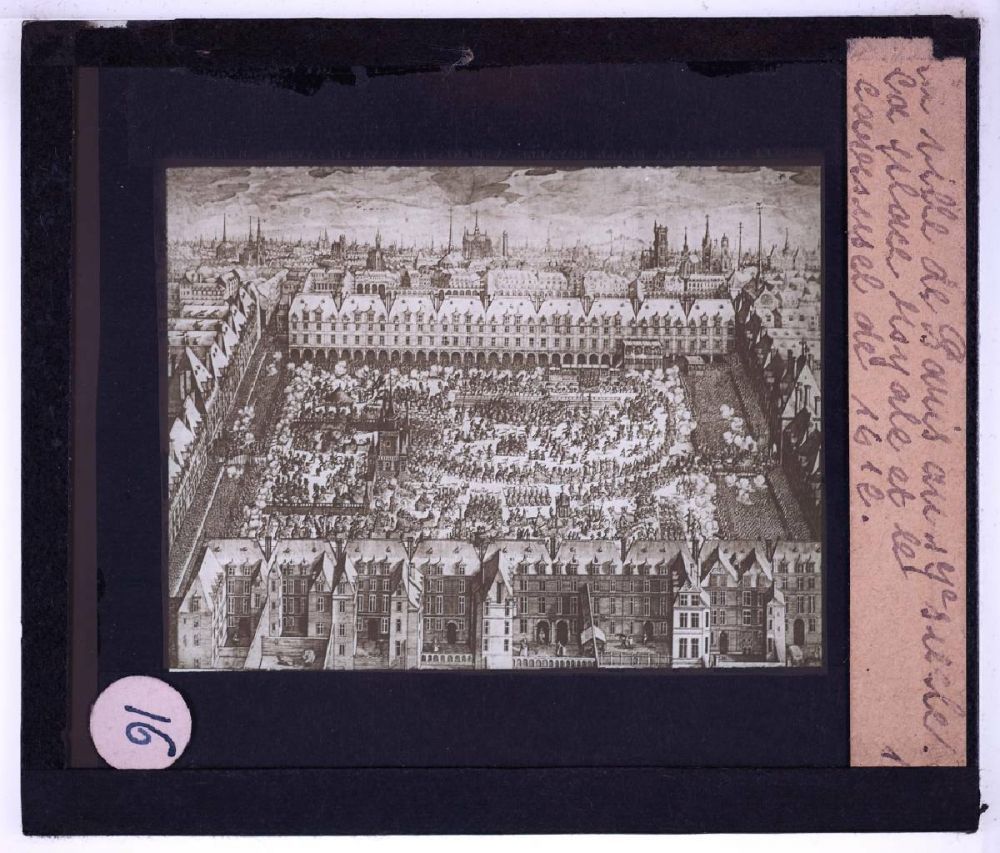 ville de Paris au 17e siècle.
La place royale et le
carrousel de 1612.
1
16